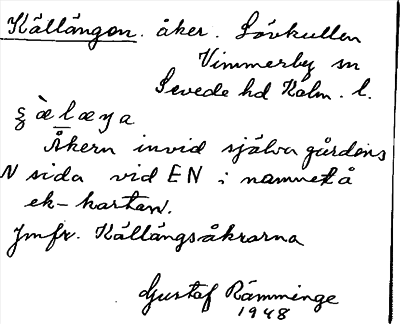 Källängen. åker. Lövkullen
Vimmerby sn
Sevede hd Kalm. l.
Åkern invid själva gårdens
N sida vid EN i namnet å
ek-kartan.
Jmfr. Källängsåkrarna
Gustaf Rämminge
1948